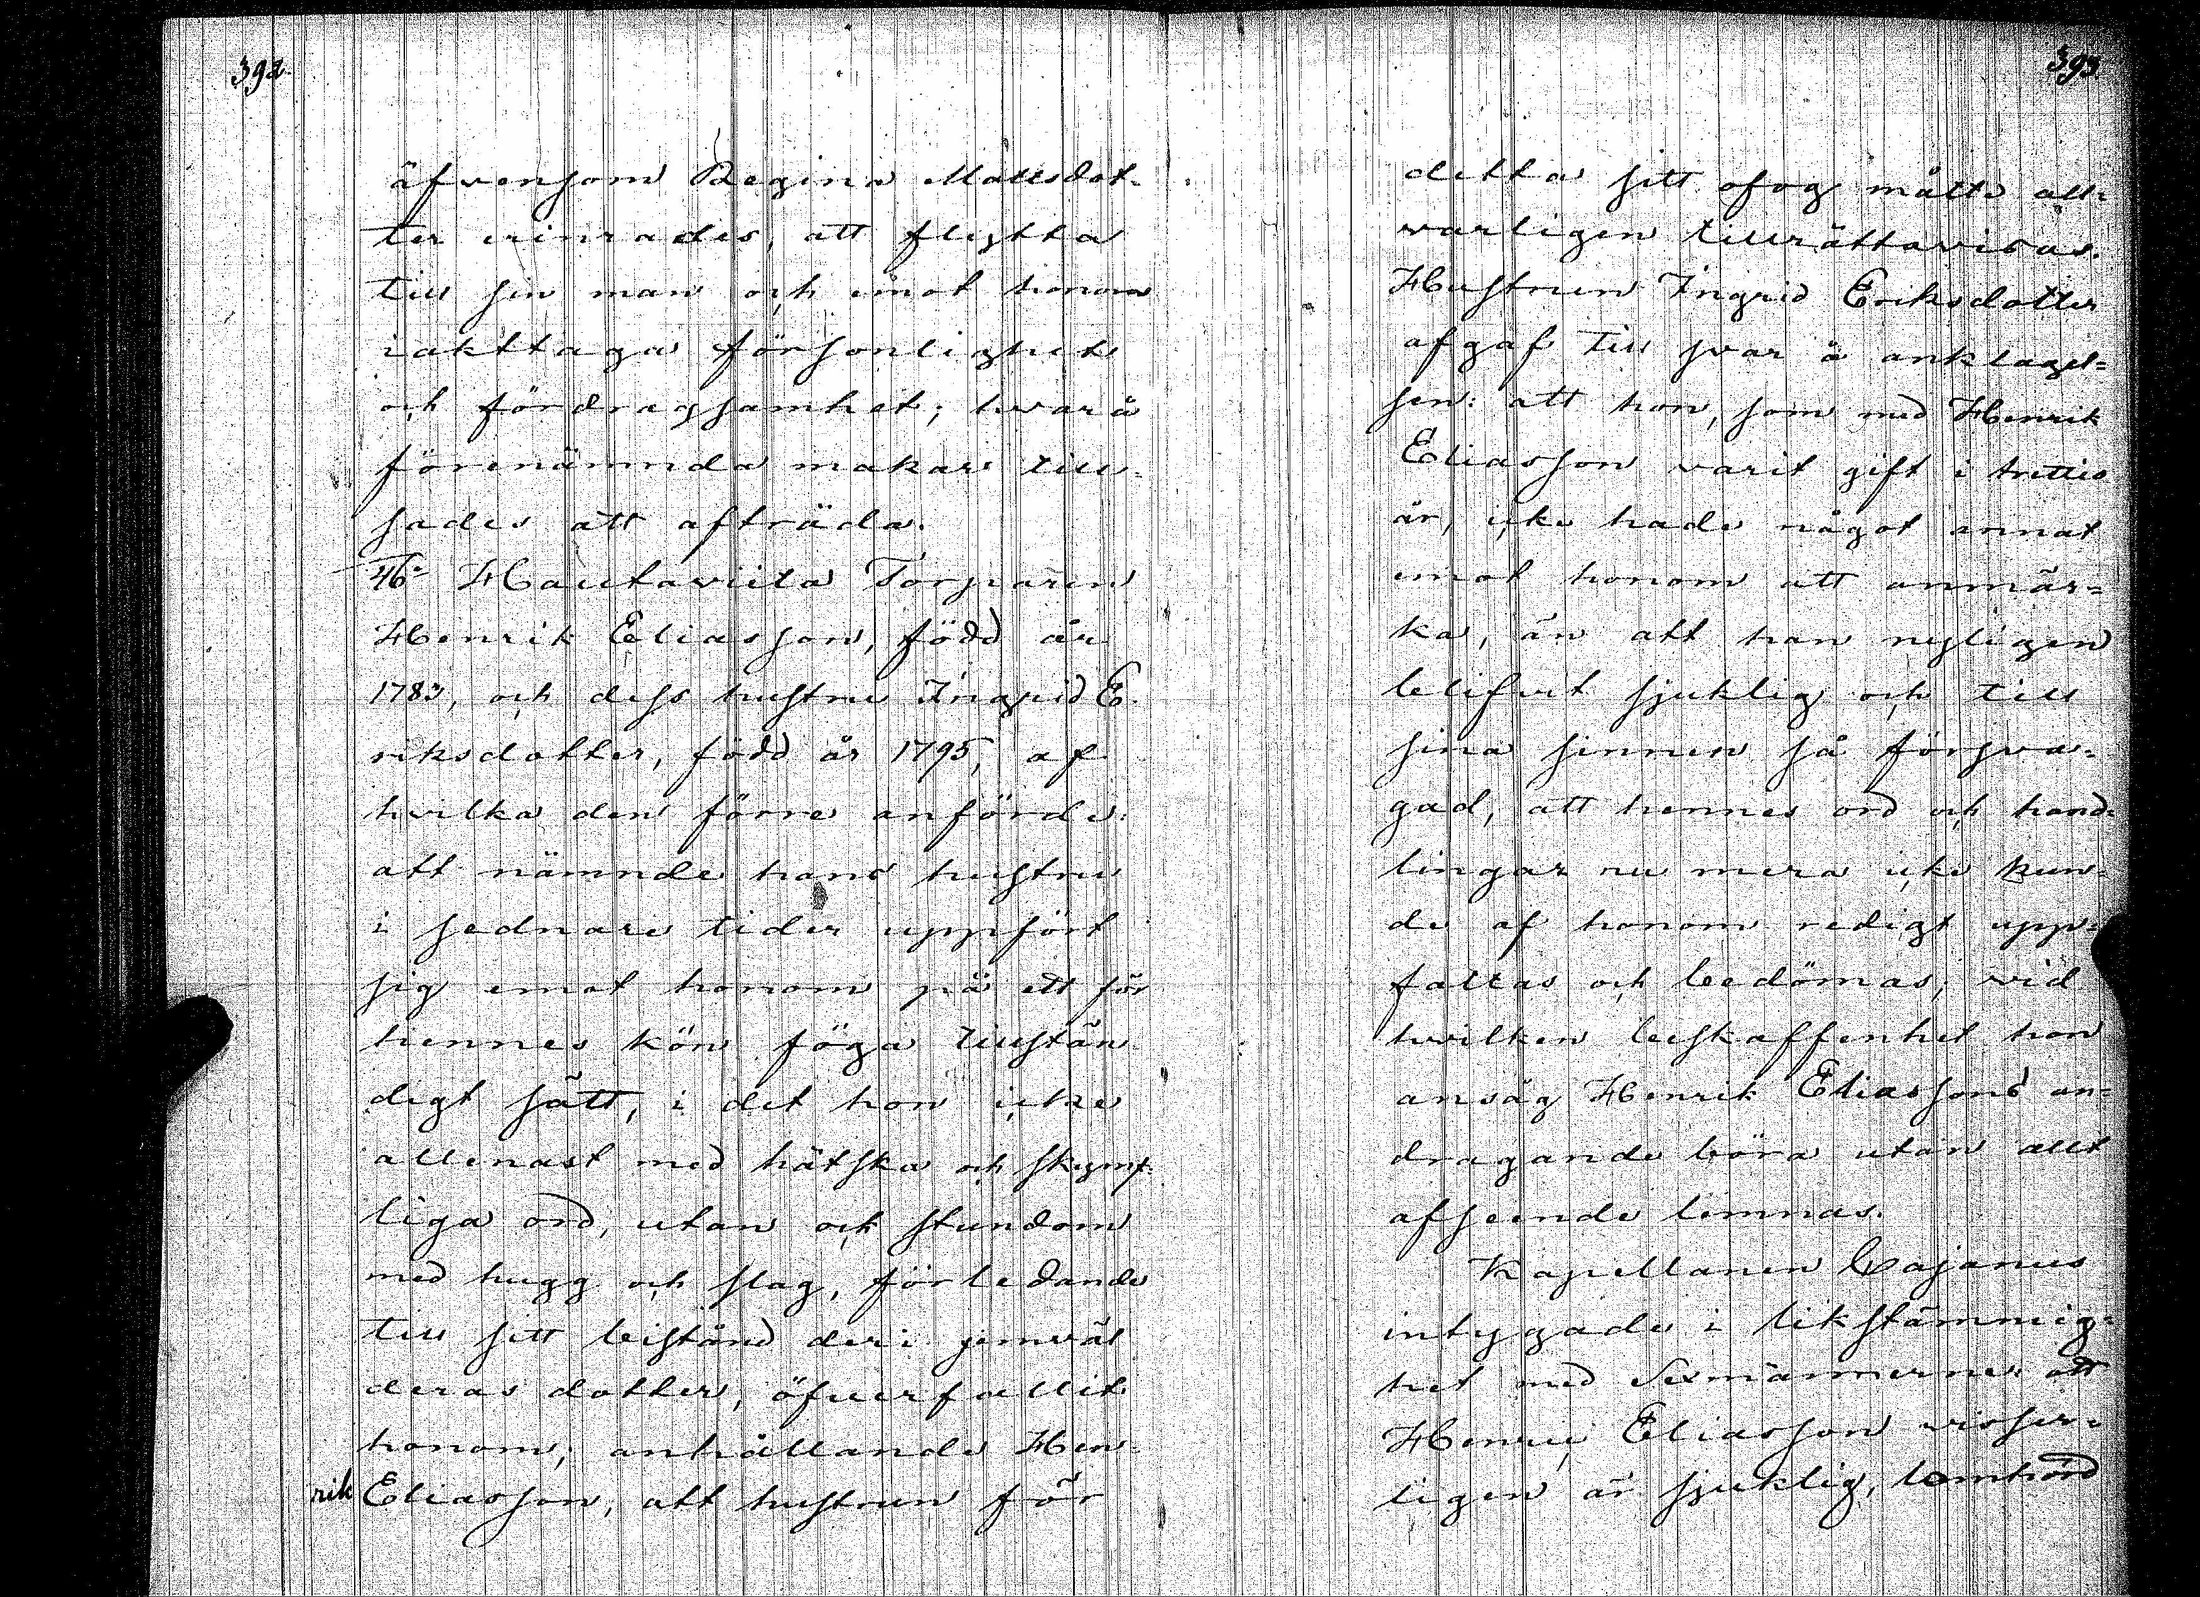 392.
äfvensom Regina Mattsdot-
ter erinrades, att flytta
till sin man och emot honom
iakttaga försonlighet
och fördragsamhet; hvarå
förenämnda makar till-
sades att afträda.
46o Hautaviita Torparen
Henrik Eliasson, född år
1783, och dess hustru Ingrid E-
riksdotter, född år 1795, af
hvilka den förre anförde:
att nämnde hans hustru
i sednare tider uppfört
sig emot honom på ett för
hennes kön föga tillstän
digt sätt, i det hon icke
allenast med hätska och skymf-
liga ord, utan ock stundom
med hugg och slag, förledande
till sitt beistånd deri jemväl
deras dotter, öfverfallit
honom; anhållande Hen-
rik Eliasson, att hustrun för
393
detta sitt ofog måtte all-
varligen tillrättavisas.
Hustrun Ingrid Eriksdotter
afgaf till svar å anklagel-
sen: att hon, som med Henrik
Eliasson varit gift i trettio
år, icke hade något annat
emot honom att anmär-
ka, än att han nyligen
blifvit sjuklig och till
sina sinnen så försva-
gad, att hennes ord och hand-
lingar nu mera icke kun-
de af honom redigt upp-
fattas och bedömas; vid
hvilken beskaffenhet hon
ansåg Henrik Eliassons an-
dragande böra utan allt
afseende lemnas.
Kapellanen Cajanus
intygade i likstämmig-
het med Sexmännerne: att
Henric Eliasson visser-
ligen är sjuklig, lomhörd